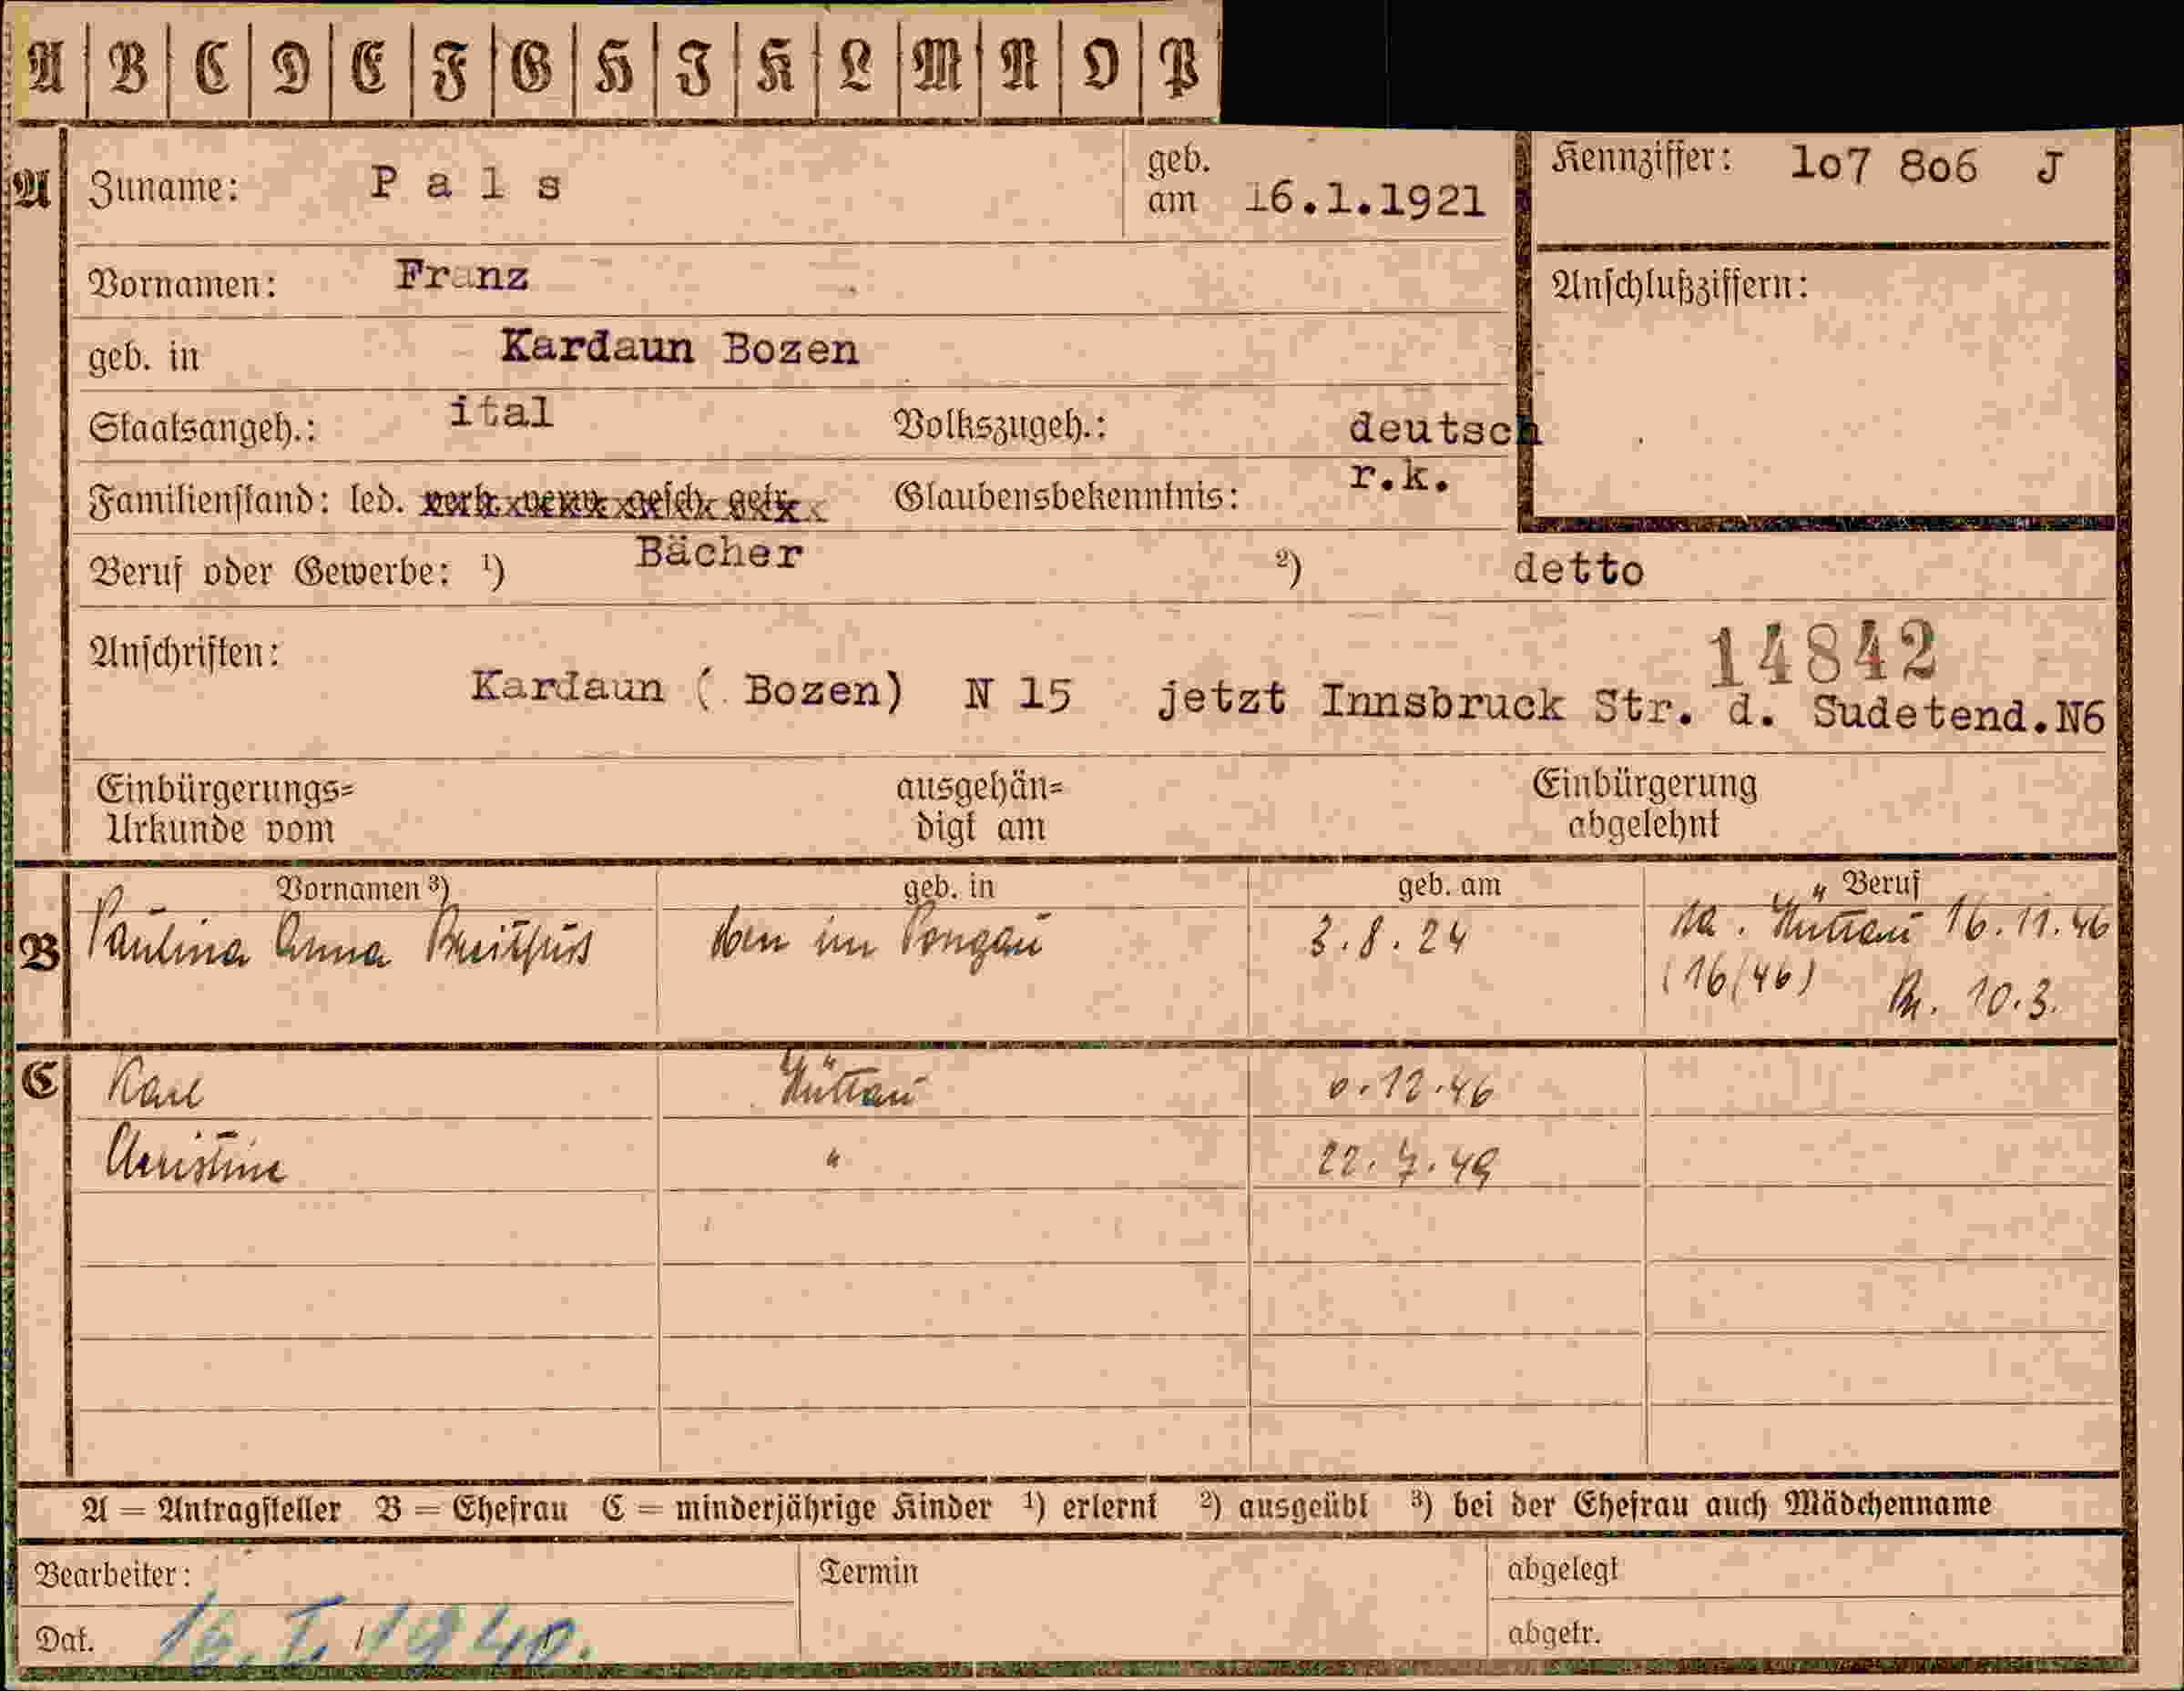 A B C D E F G H I K L M N O P
A Zuname: Pals geb. am 16.1.1921 Kennziffer: 107 806 J
Vornamen: Franz Anschlußziffern:
geb. in Kardaun Bozen
Staatsangeh.: ital Volkszugeh.: deutsch
Familienstand: led. verh. verw. gesch. getr. Glaubensbekenntnis: r.k.
Beruf oder Gewerbe: ¹) Bächer ²) detto
14842
Anschriften: Kardaun ( Bozen) N 15 jetzt Innsbruck Str. d. Sudetend.N6
Einbürgerungs= ausgehän= Einbürgerung
Urkunde vom digt am abgelehnt
Vornamen ³) geb. in geb. am Beruf
B Paulina Anna Breitfuss im Pongau 3.8.24 Hüttau 16.11.46
(16/46) 10.3.
C Karl Hüttau 12.46
Christine " 22.7.49
A = Antragsteller B = Ehefrau C = minderjährige Kinder ¹) erlernt ²) ausgeübt ³) bei der Ehefrau auch Mädchenname
Bearbeiter: Termin abgelegt
Dat. 16.I.1940. abgetr.